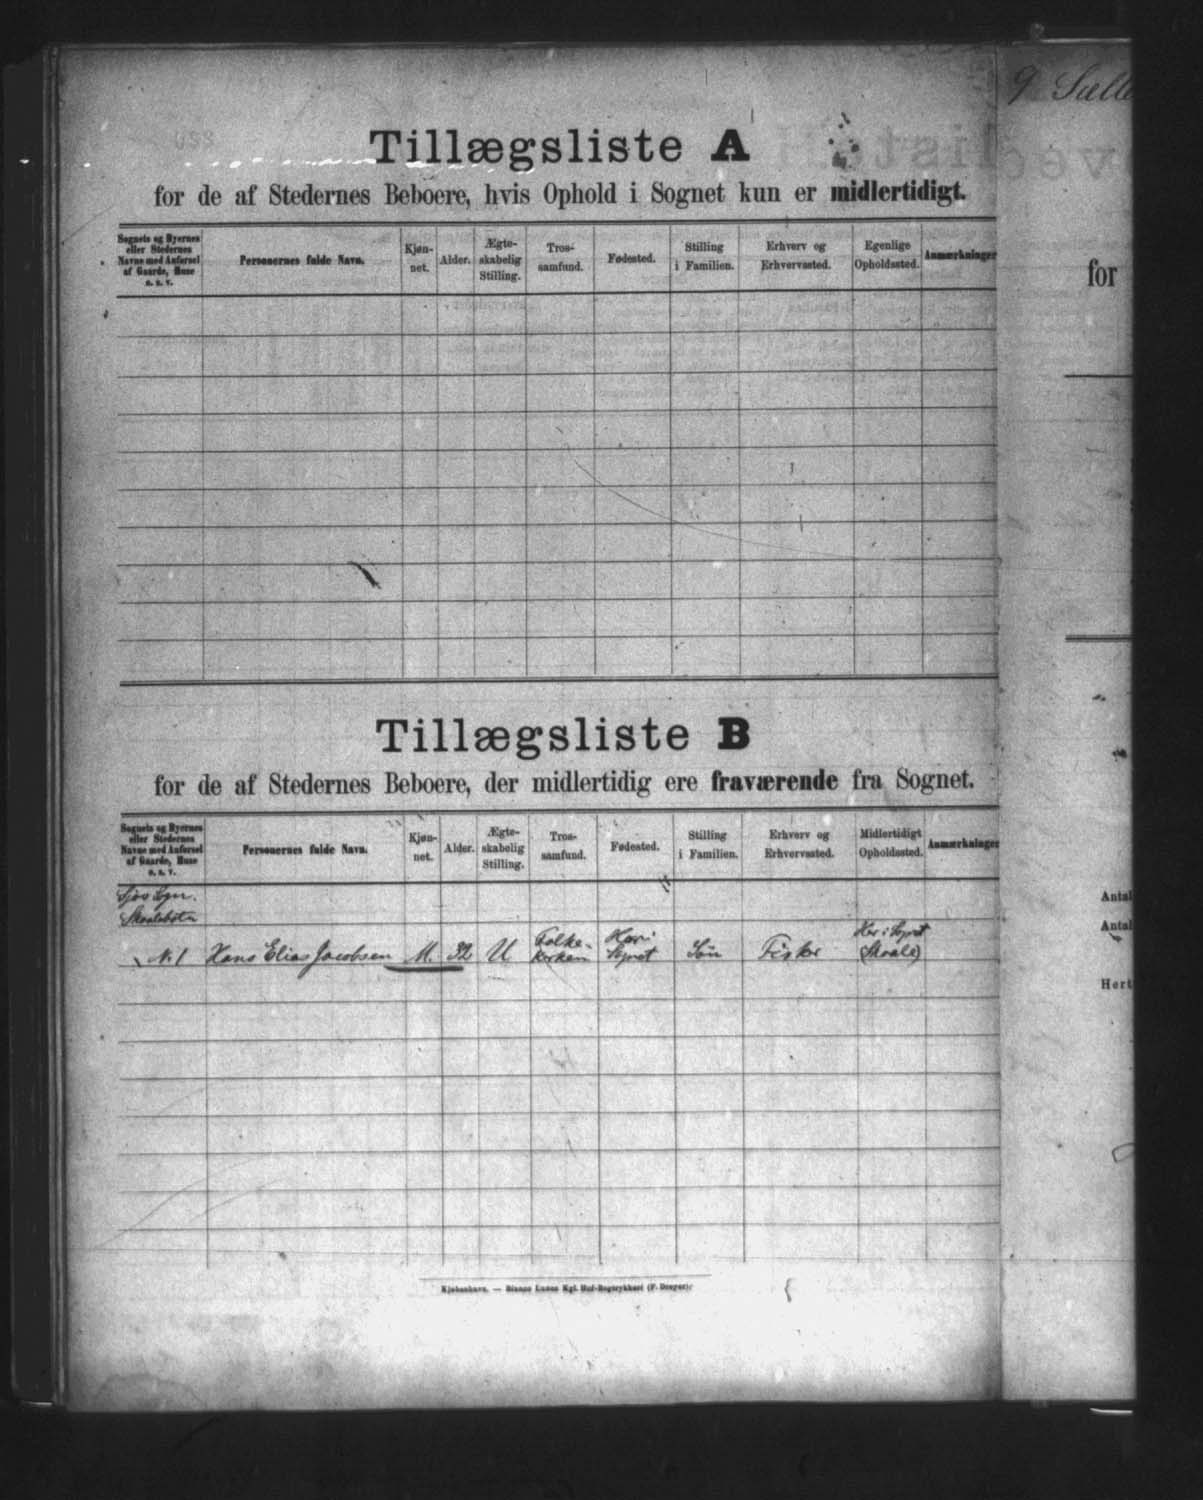 Tillægsliste A
for de af Stedernes Beboere, hvis Ophold i Sognet kun er midlertidigt.
Sognets og Byernes eller Stedernes Navne med Anførsel af Gaarde, Huse o. s. v.
Personernes fulde Navn.
Kjøn-
net.
Alder.
Ægte-
skabelig
Stilling.
Tros-
samfund.
Fødested.
Stilling
i Familien.
Erhverv og
Erhvervssted.
Egenlige
Opholdssted.
Anmærkninger
Tillægsliste B
for de af Stedernes Beboere, der midlertidig ere fraværende fra Sognet.
Sognets og Byernes
eller Stedernes
Navne med Anførsel
af Gaarde, Huse
o. s. v.
Personernes fulde Navn.
Kjøn-
net.
Alder.
Ægte-
skabelig
Stilling.
Tros-
samfund.
Fødested.
Stilling
i Familien.
Erhverv og
Erhvervssted.
Midlertidigt
Opholdssted.
Anmærkninger
N. 1 Hans Elias Jacobsen M. 32 U Folke-
kirken
Her i
Sognet
Søn Fisker Her i Sognet
(Skaale)
Kjøbenhavn. — Bianco Lunos Kgl. Hof-Bogtrykkeri (F. Dreyer).
for
Antal
Antal
Hert